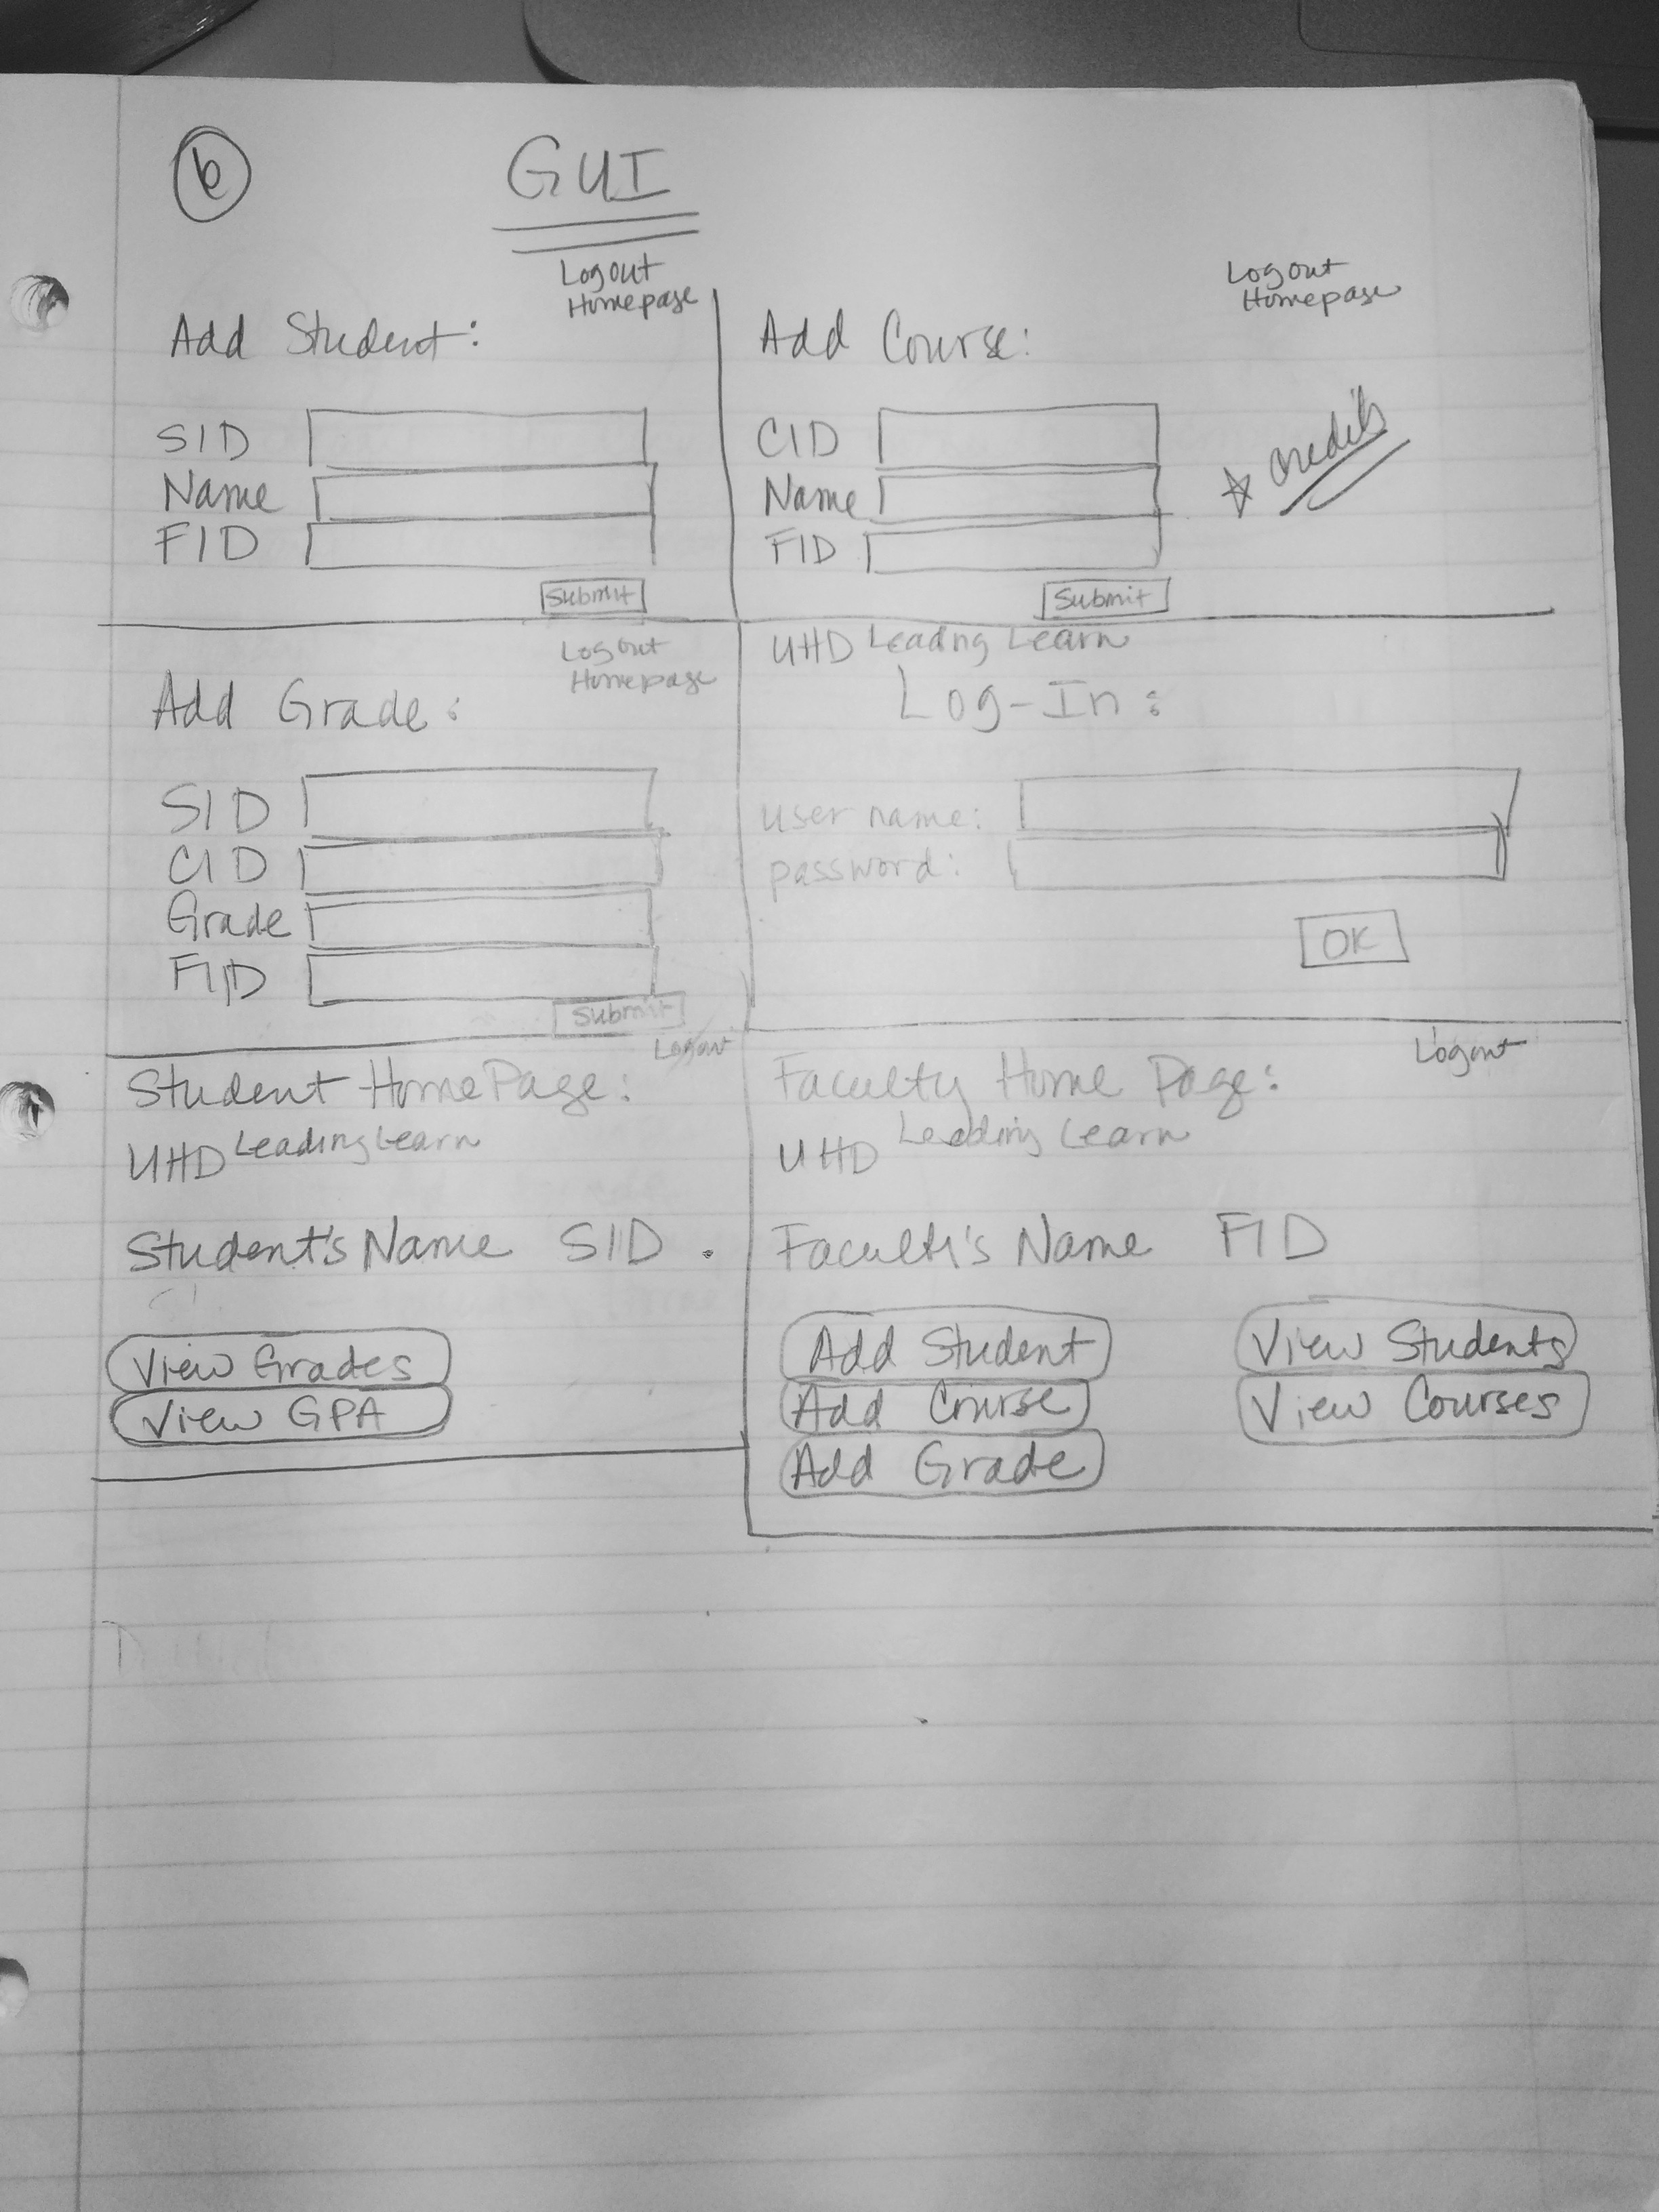 b
GUI
Logout
Homepage
Add Student:
SID
Name
FID
Submit
Logout
Homepage
Add Course:
CID
Name
FID
* credits
Submit
Logout
Homepage
Add Grade:
SID
CID
Grade
FID
Submit
UHD Leadng Learn
Log-In:
user name:
password:
OK
Logout
Student HomePage:
UHD Leading Learn
Student's Name SID .
View Grades
View GPA
Logout
Faculty Home Page:
UHD Leading Learn
Faculti's Name FID
Add Student
Add Course
Add Grade
View Students
View Courses